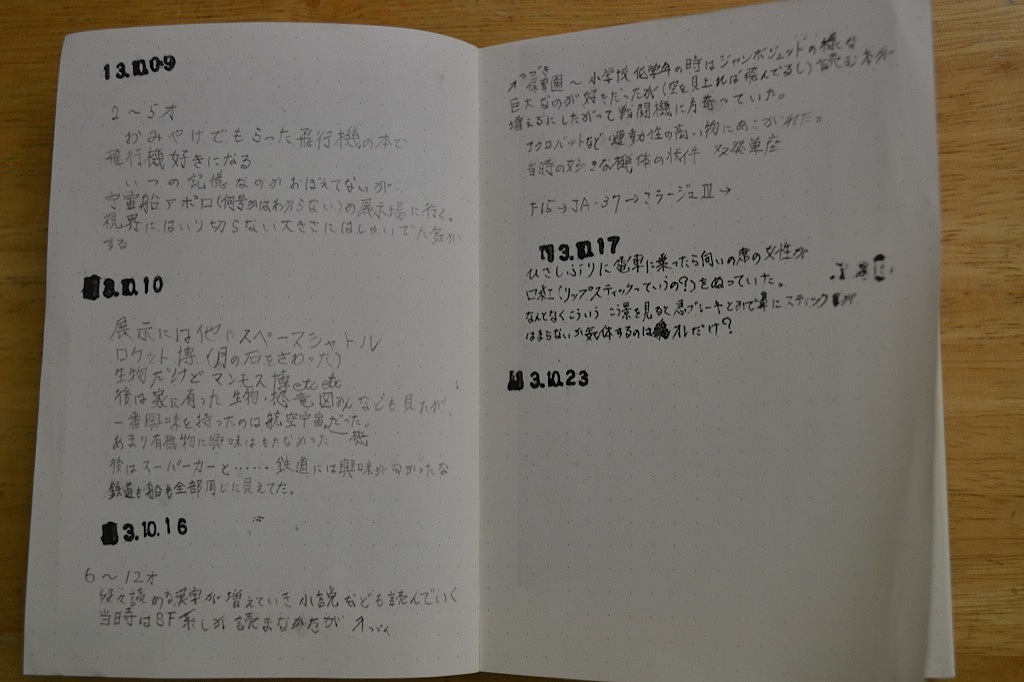 13.10.09
2〜5才
おみやげでもらった飛行機の本で
飛行機好きになる
いつの記憶なのかおぼえてないが
宇宙船アポロ(何号かはわからない)の展示場に行く。
視界にはいり切らない大きさにはしゃいでた気が
する
3.10.10
展示には他にスペースシャトル
ロケット博(月の石をさわった)
生物だけどマンモス博etc etc
後は家に有った生物・恐竜図かんなども見たが、
一番興味を持ったのは航空宇宙だった。
あまり有機物に興味はもたなかった
後はスーパーカーと……鉄道には興味がなかったな
鉄道も船も全部同じに見えてた。
3.10.16
6〜12才
段々読める漢字が増えていき小説なども読んでいく
当時はSF系しか読まなかったが
つづき
保育園〜小学校低学年の時はジャンボジェットの様な
巨大なのが好きだったが(空を見上れば飛んでるし)読む本が
増えるにしたがって戦闘機に片寄っていた。
アクロバットなど運動性の高い物にあこがれた。
当時の好きな機体の状件 双発単座
F15→JA-37→ミラージュⅢ→
13.10.17
ひさしぶりに電車に乗ったら向いの席の女性が
口紅(リップスティックっていうの?)をぬっていた。
なんとなくこういうこう景を見ると急ブレーキとかで鼻にスティックが
はまらないか気体するのはオレだけ?
3.10.23